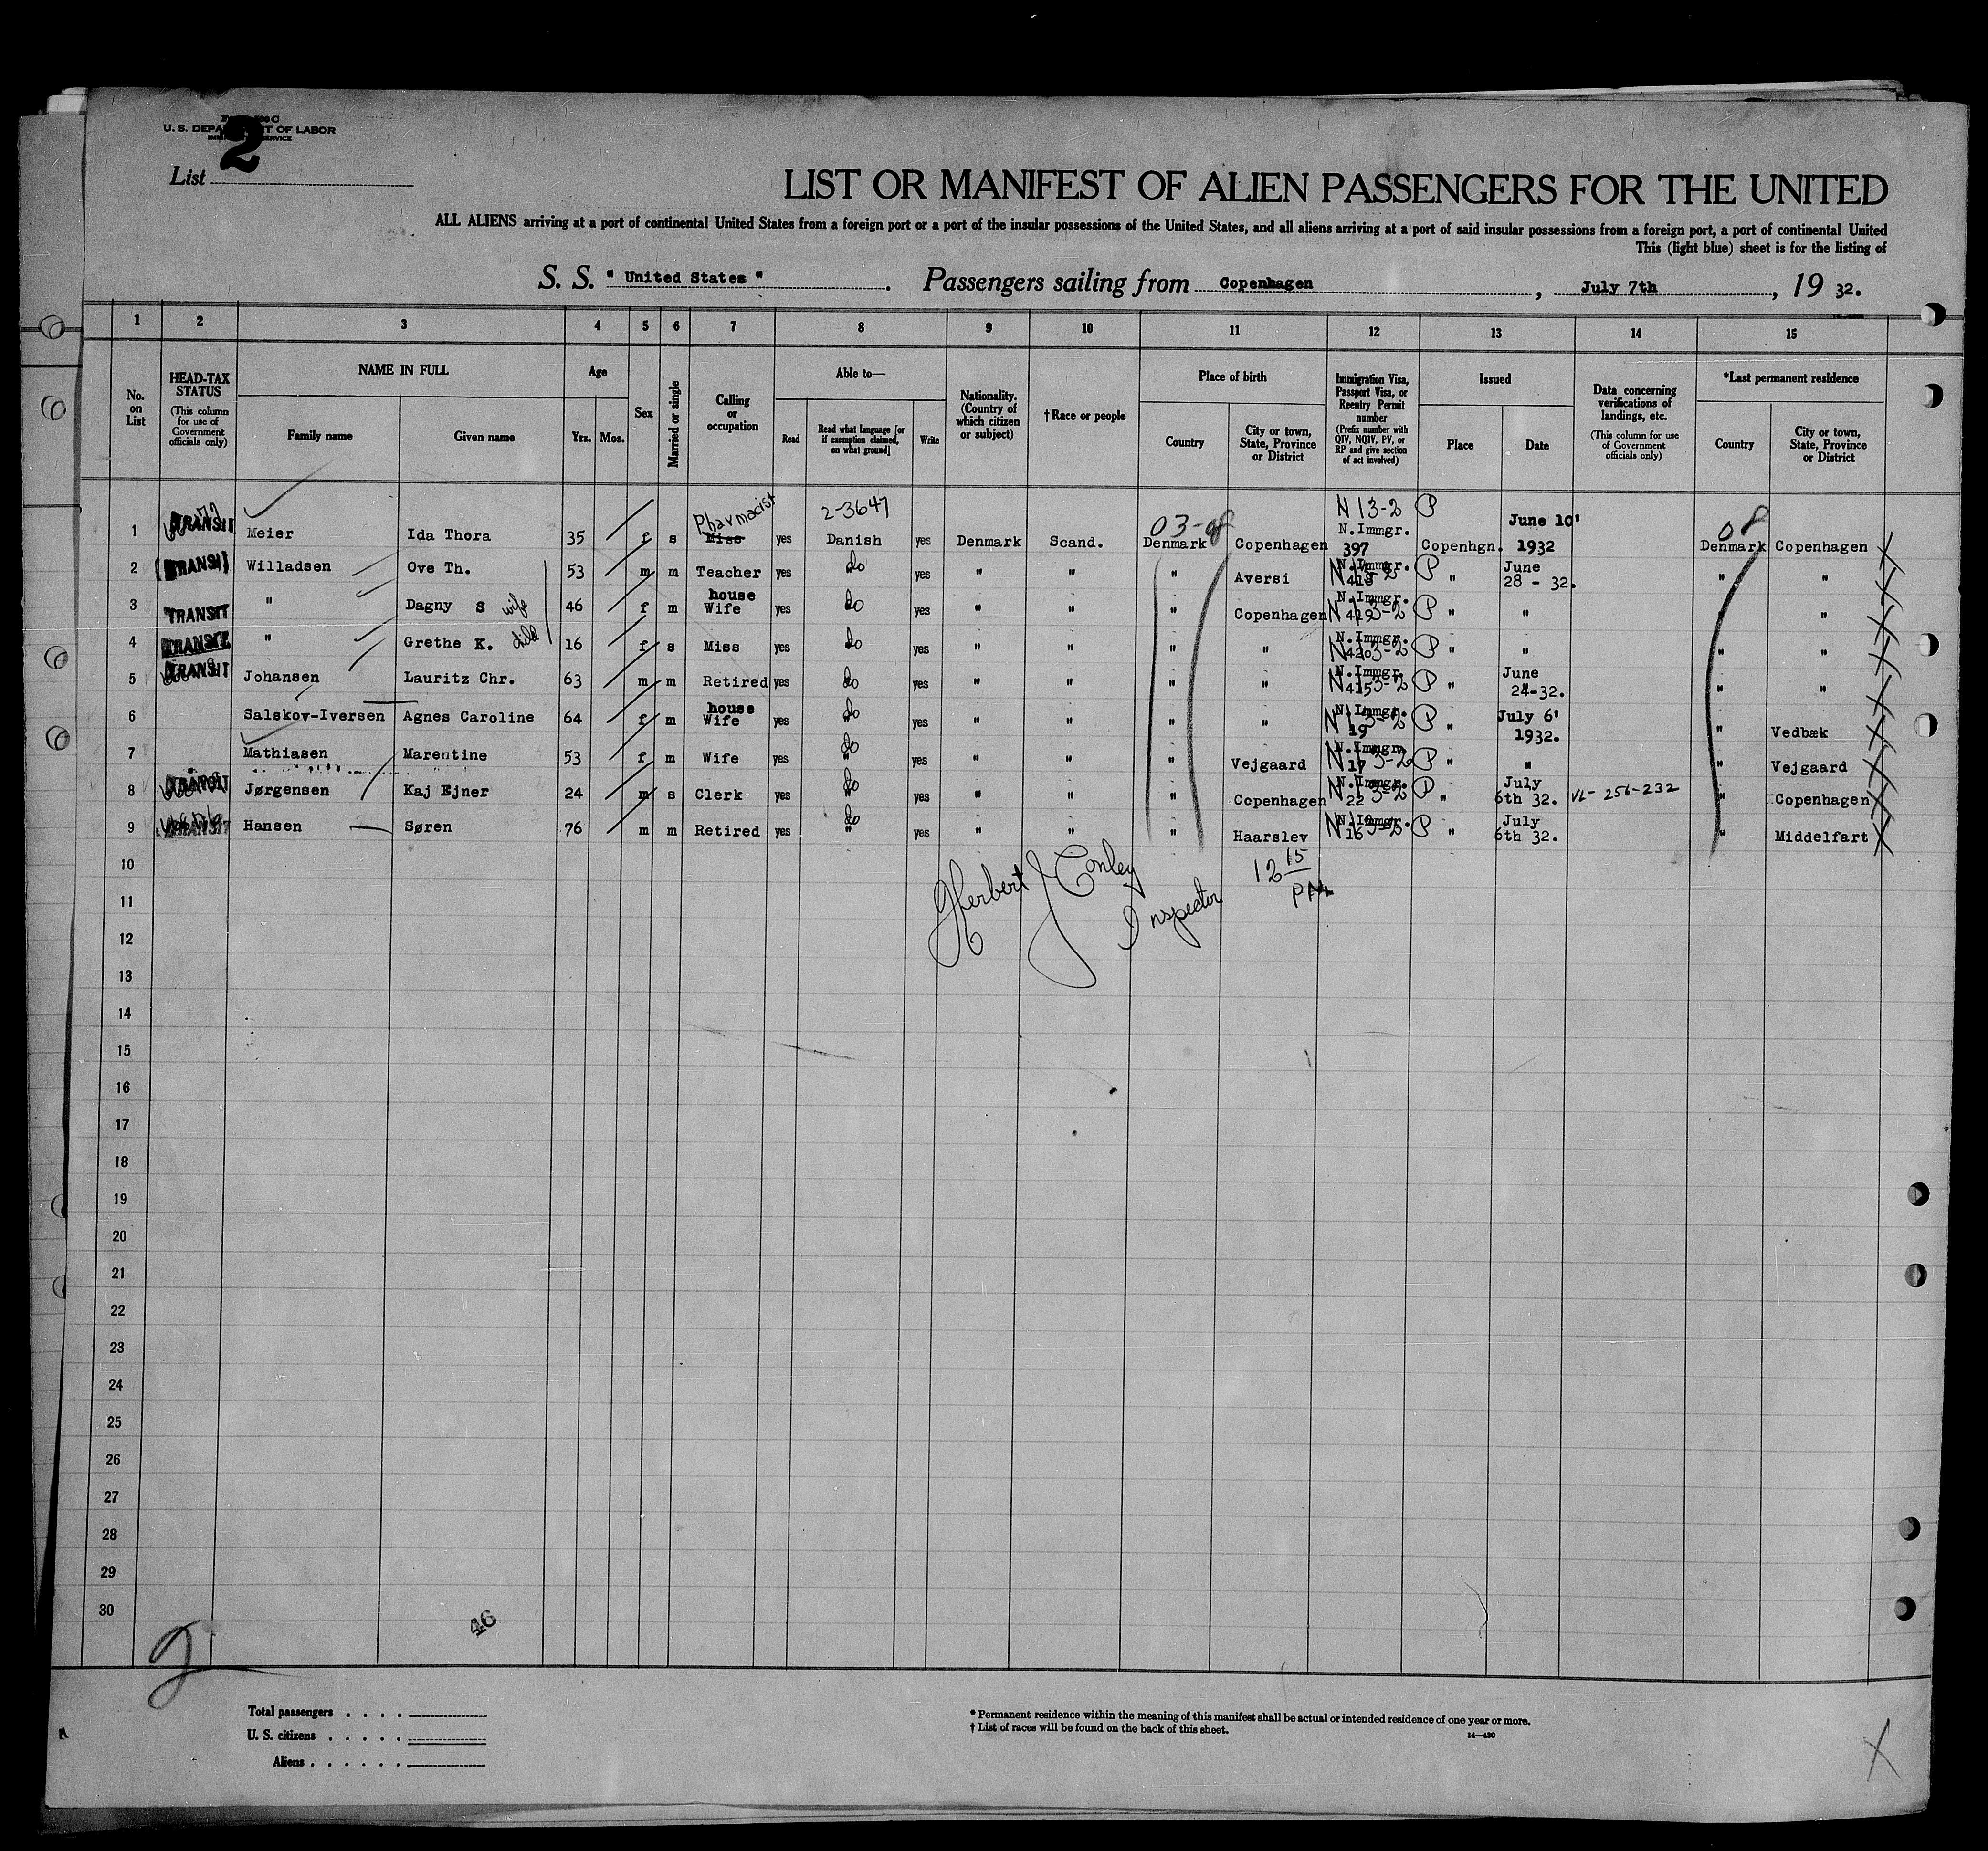 U. S. DEPARTMENT OF LABOR
2
List
LIST OR MANIFEST OF ALIEN PASSENGERS FOR THE UNITED
ALL ALIENS arriving at a port of continental United States from a foreign port or a port of the insular possessions of the United States, and all aliens arriving at a port of said insular possessions from a foreign port, a port of continental United
This (light blue) sheet is for the listing of
S. S. " United States " . Passengers sailing from Copenhagen , July 7th , 19 32.
1 2 3 4 5 6 7 8 9 10 11 12 13 14 15
No. on List
HEAD-TAX STATUS (This column for use of Government officials only)
NAME IN FULL Family name Given name
Age Yrs. Mos.
Sex
Married or single
Calling or occupation
Able to— Read Read what language [or if exemption claimed, on what ground] Write
Nationality. (Country of which citizen or subject)
† Race or people
Place of birth Country City or town, State, Province or District
Immigration Visa, Passport Visa, or Reentry Permit number (Prefix number with QIV, NQIV, PV, or RP and give section of act involved)
Issued Place Date
Data concerning verifications of landings, etc. (This column for use of Government officials only)
*Last permanent residence Country City or town, State, Province or District
Pharmacist 2-3647 03-08 N 13-2 P 08
1 TRANSIT Meier Ida Thora 35 f s Miss yes Danish yes Denmark Scand. Denmark Copenhagen N.Immgr. 397 Copenhgn. June 10' 1932 Denmark Copenhagen
2 TRANSIT Willadsen Ove Th. 53 m m Teacher yes do yes " " " Aversi N.Immgr. P " June 28 - 32. " "
3 TRANSIT " Dagny S wife 46 f m house Wife yes do yes " " " Copenhagen N.Immgr. 419 N 13-2 P " " " "
4 TRANSIT " Grethe K. child 16 f s Miss yes do yes " " " " N.Immgr. 420 N 13-2 P " " " "
5 TRANSIT Johansen Lauritz Chr. 63 m m Retired yes do yes " " " " N.Immgr. 415 N 13-2 P " June 24-32. " "
6 Salskov-Iversen Agnes Caroline 64 f m house Wife yes do yes " " " " N.Immgr. 19 N 13-2 P " July 6' 1932. " Vedbæk
7 Mathiasen Marentine 53 f m Wife yes do " yes " " " Vejgaard N.Immgr. 17 N 13-2 P " " " Vejgaard
8 TRANSIT Jørgensen Kaj Ejner 24 m s Clerk yes do " yes " " " Copenhagen N.Immgr. 22 N 13-2 P " July 6th 32. VL- 256-232 " Copenhagen
9 TRANSIT Hansen Søren 76 m m Retired yes do " yes " " " Haarslev N.Immgr. 16 N 13-2 P " July 6th 32. " Middelfart
10
Herbert J Conley Inspector 12 15 PM
11
12
13
14
15
16
17
18
19
20
21
22
23
24
25
26
27
28
29
30
46
2
Total passengers . . . .
U. S. citizens . . . . .
Aliens . . . . . .
* Permanent residence within the meaning of this manifest shall be actual or intended residence of one year or more.
† List of races will be found on the back of this sheet.
14—430